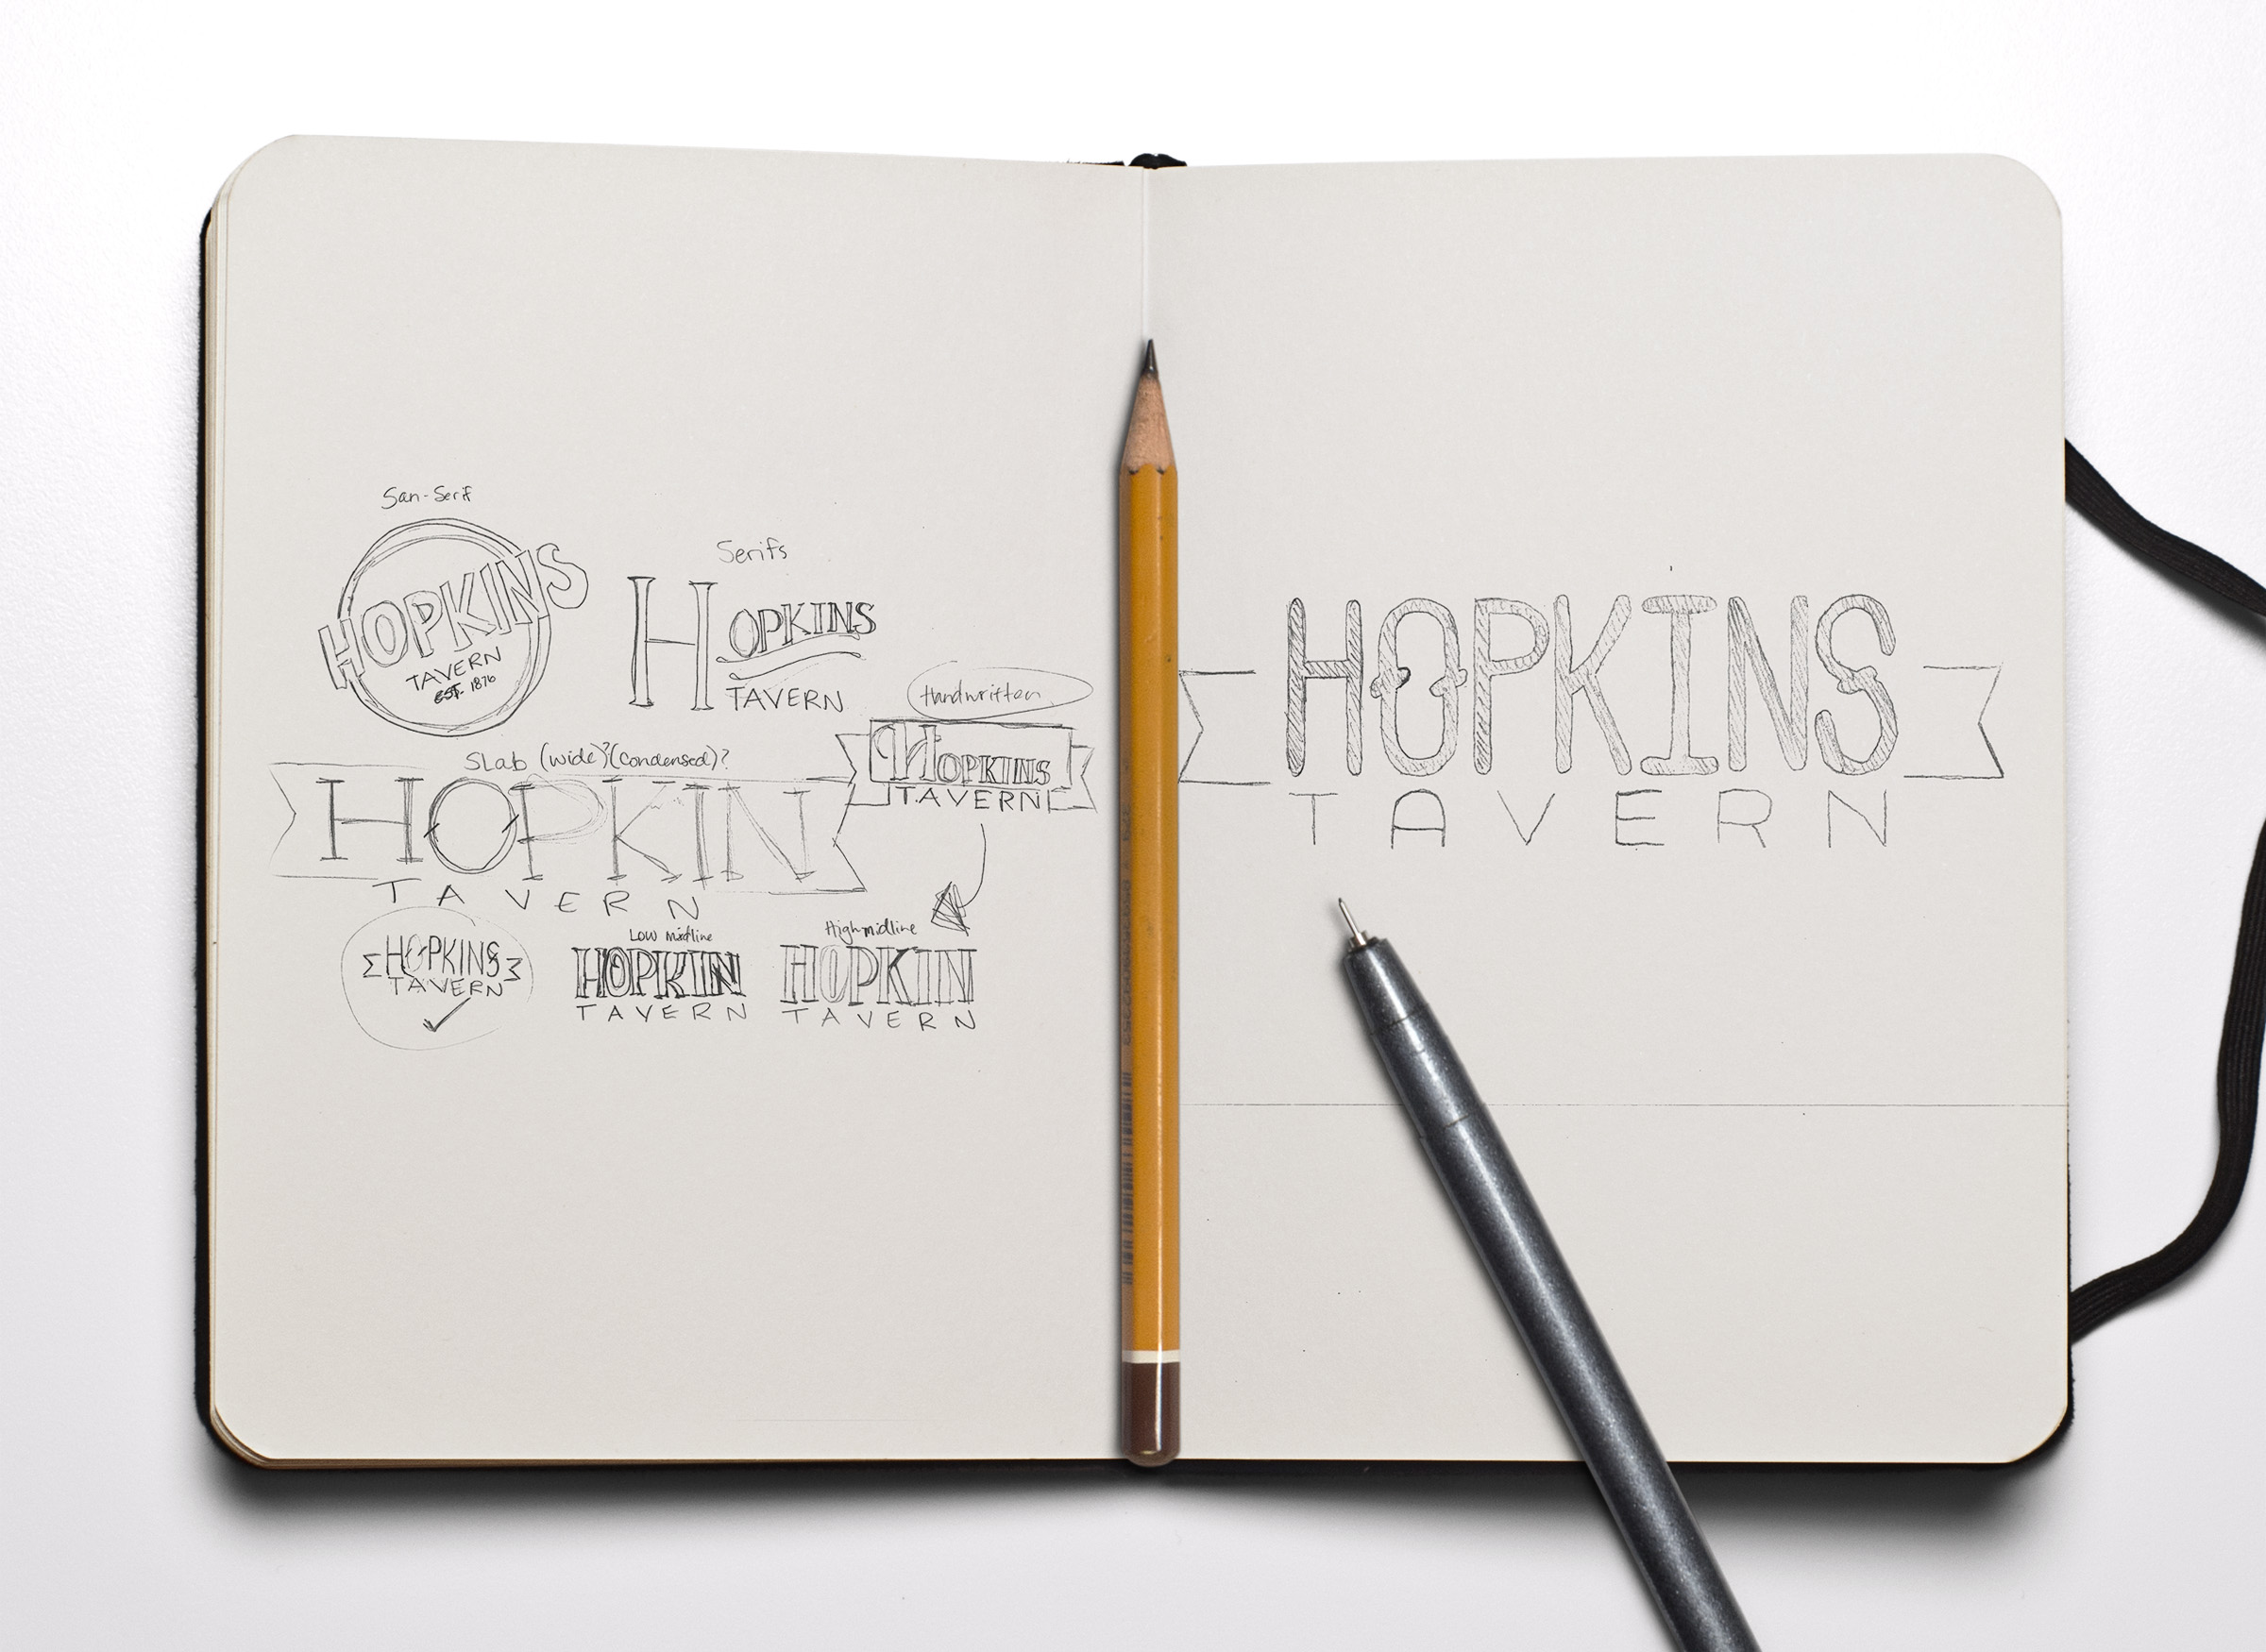 San-Serif
HOPKINS
TAVERN
EST. 1876
Serifs
HOPKINS
TAVERN
Handwritten
HOPKINS
TAVERN
Slab (wide)?(condensed)?
HOPKIN
TAVERN
HOPKINS
TAVERN
Low midline
HOPKIN
TAVERN
High midline
HOPKIN
TAVERN
HOPKINS
TAVERN